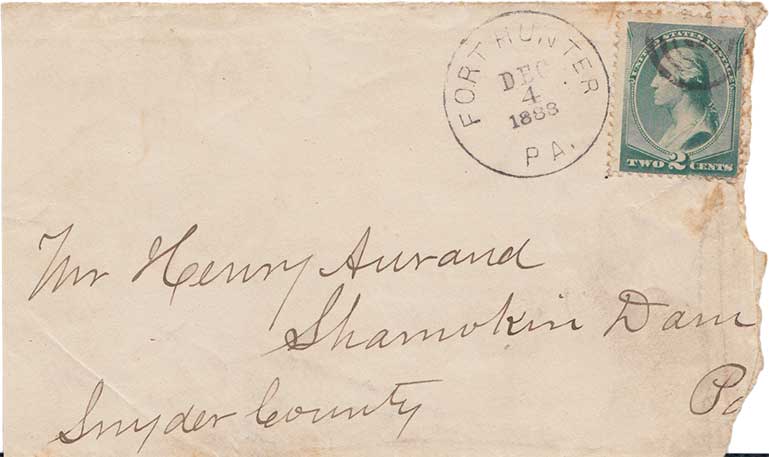 FORT HUNTER
DEC
4
1888
PA.
UNITED STATES POSTAGE
TWO 2 CENTS
Mr Henry Aurand
Shamokin Dam
Snyder County Pa